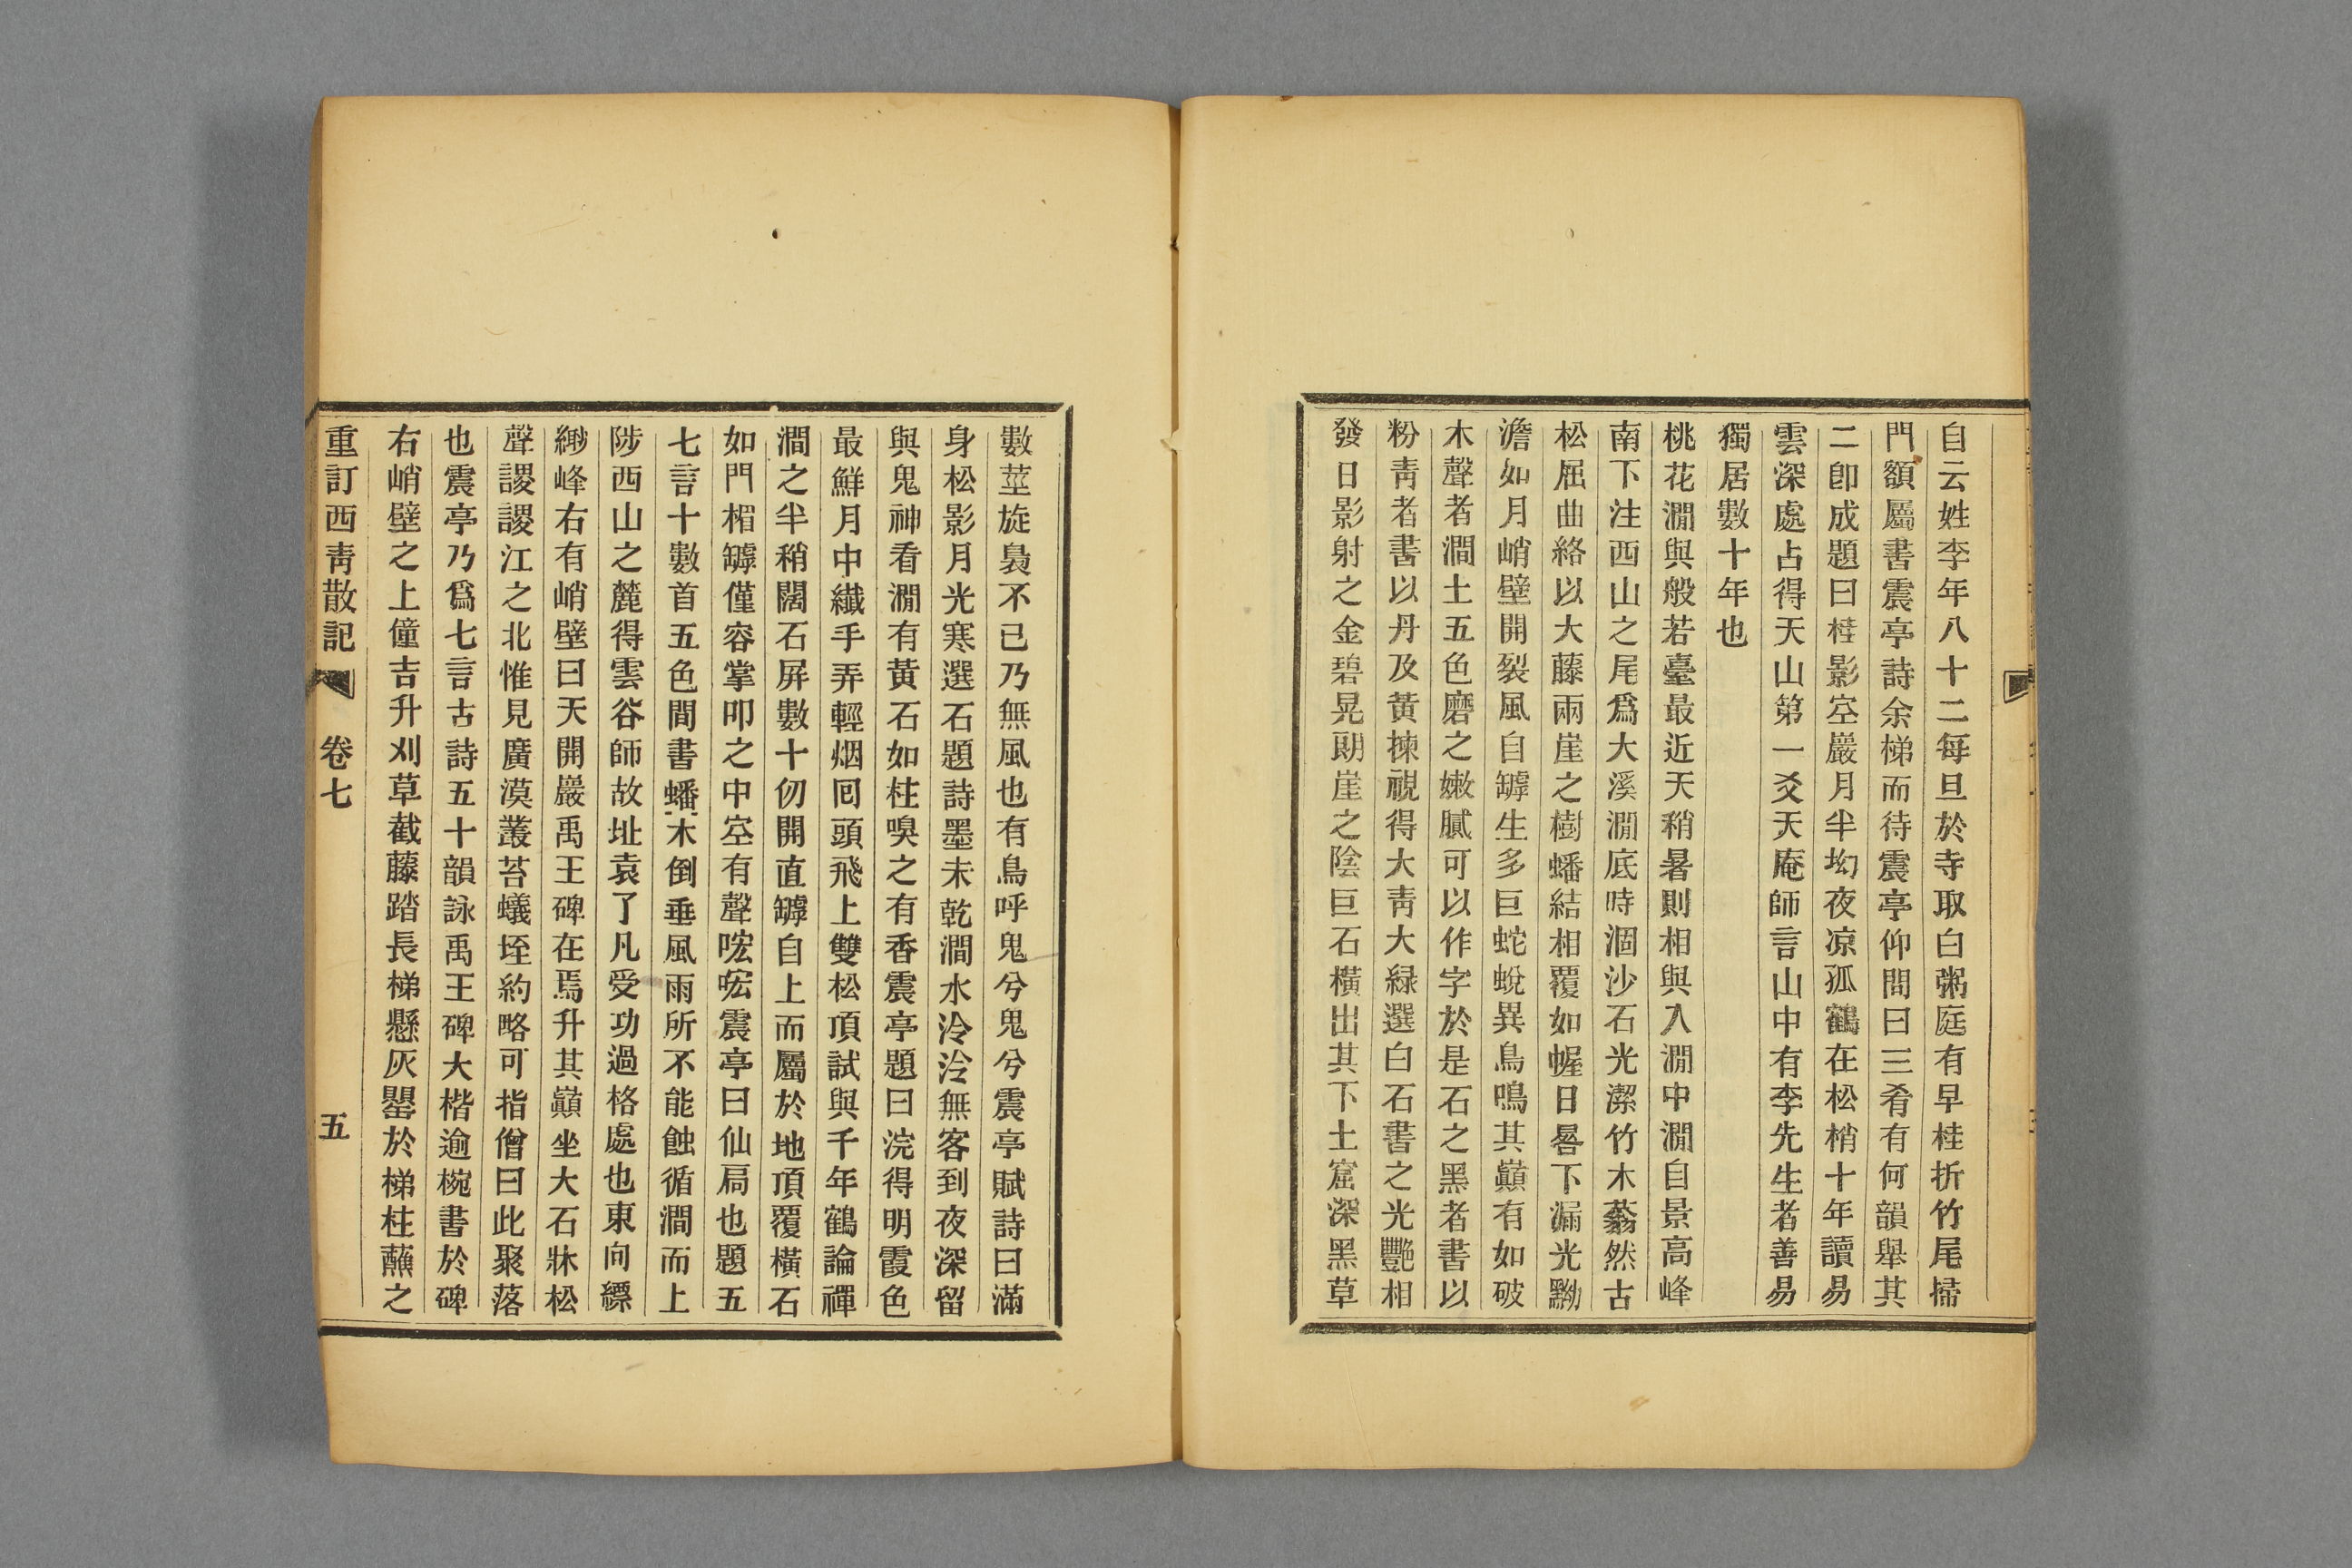 自云姓李年八十二每旦於寺取白粥庭有早桂折竹尾掃
門額屬書震亭詩余梯而待震亭仰問曰三肴有何韻舉其
二卽成題曰桂影空巖月半㘭夜凉孤鶴在松梢十年讀易
雲深處占得天山第一爻天庵師言山中有李先生者善易
獨居數十年也
桃花澗與般若臺最近天稍暑則相與入澗中澗自景高峰
南下注西山之尾爲大溪澗底時涸沙石光潔竹木蓊然古
松屈曲絡以大藤兩崖之樹蟠結相覆如幄日晷下漏光黝
澹如月峭壁開裂風自罅生多巨蛇蛻異鳥鳴其巔有如破
木聲者澗土五色磨之嫩膩可以作字於是石之黑者書以
粉靑者書以丹及黃揀視得大靑大緑選白石書之光豔相
發日影射之金碧晃朗崖之陰巨石橫出其下土窟深黑草
數莖旋裊不已乃無風也有鳥呼鬼兮鬼兮震亭賦詩曰滿
身松影月光寒選石題詩墨未乾澗水泠泠無客到夜深留
與鬼神看澗有黃石如柱嗅之有香震亭題曰浣得明霞色
最鮮月中纖手弄輕烟回頭飛上雙松頂試與千年鶴論禪
澗之半稍闊石屏數十仞開直罅自上而屬於地頂覆橫石
如門楣罅僅容掌叩之中空有聲㕫㕫震亭曰仙扃也題五
七言十數首五色間書蟠木倒垂風雨所不能蝕循澗而上
陟西山之麓得雲谷師故址袁了凡受功過格處也東向縹
緲峰右有峭壁曰天開巖禹王碑在焉升其巔坐大石牀松
聲謖謖江之北惟見廣漠叢苔蟻垤約略可指僧曰此聚落
也震亭乃爲七言古詩五十韻詠禹王碑大楷逾椀書於碑
右峭壁之上僮吉升刈草截藤踏長梯懸灰罌於梯柱蘸之
重訂西靑散記 卷七 五